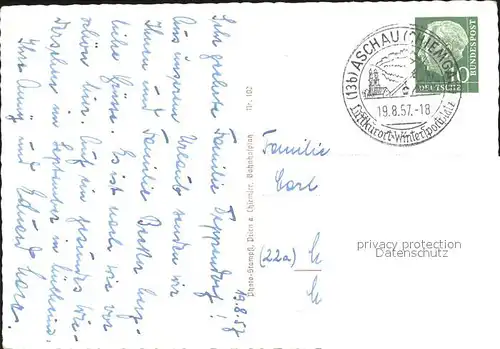 19.8.57
Sehr geehrte Familie Tappendorf!
Aus unserem Urlaub senden wir
Ihnen und Familie Becker herz-
liche Grüsse. Es ist nach wie vor
schön hier. Auf ein gesundes Wie-
dersehen im September in
Ihre Änny und Eduard
Photo-Stumpf, Prien a. Chiemsee, Bahnhofplatz
Nr. 102
(13b) ASCHAU (CHIEMGAU)
c
19.8.57.-18
Luftkurort-Wintersportplatz
DEUTSCHE
BUNDESPOST
10
Familie
Carl
(22a)
privacy protection
Datenschutz